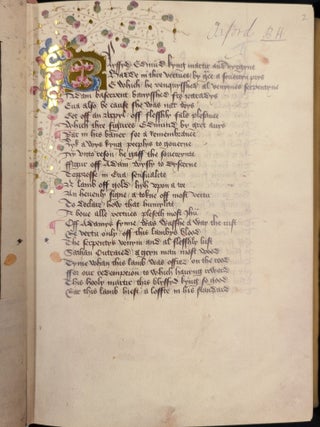 2
Oxford B H
Blyssyd Edmund kyng martir and vyrgyne
Hadde in thre vertues by grace a souereyn prys
Be which he venquysshed al venymes serpentyne
Adam ba serpent banysshed fro paradys
Eua also be cause she was nat wys
Eet off an appyl off flesshly fals plesance
Which thre figures Edmund by gret auys
Bar in his baner for a remembrance
Lyk a wys kyng peeplis to gouerne
Ay vnto reson he gaff the souereynte
Figur off Adam wysly to dyscerne
Toppresse in Eua sensualite
A lamb off gold hyh vpon a tre
An heuenly signe a tokne off most vertu
To declare how that humylite
A boue alle vertues pleseth most Jhu
Off Adamys synne was wasshe a way the rust
Be vertu only off this lambys blood
The serpentys venym and al flesshly lust
Sathan outraied a geyn man most wood
Tyme whan this lamb was offred on the rood
For our redempcioun to which hauyng reward
This hooly martir this blyssyd kyng so good
Bar this lamb hiest a loffte in his standard